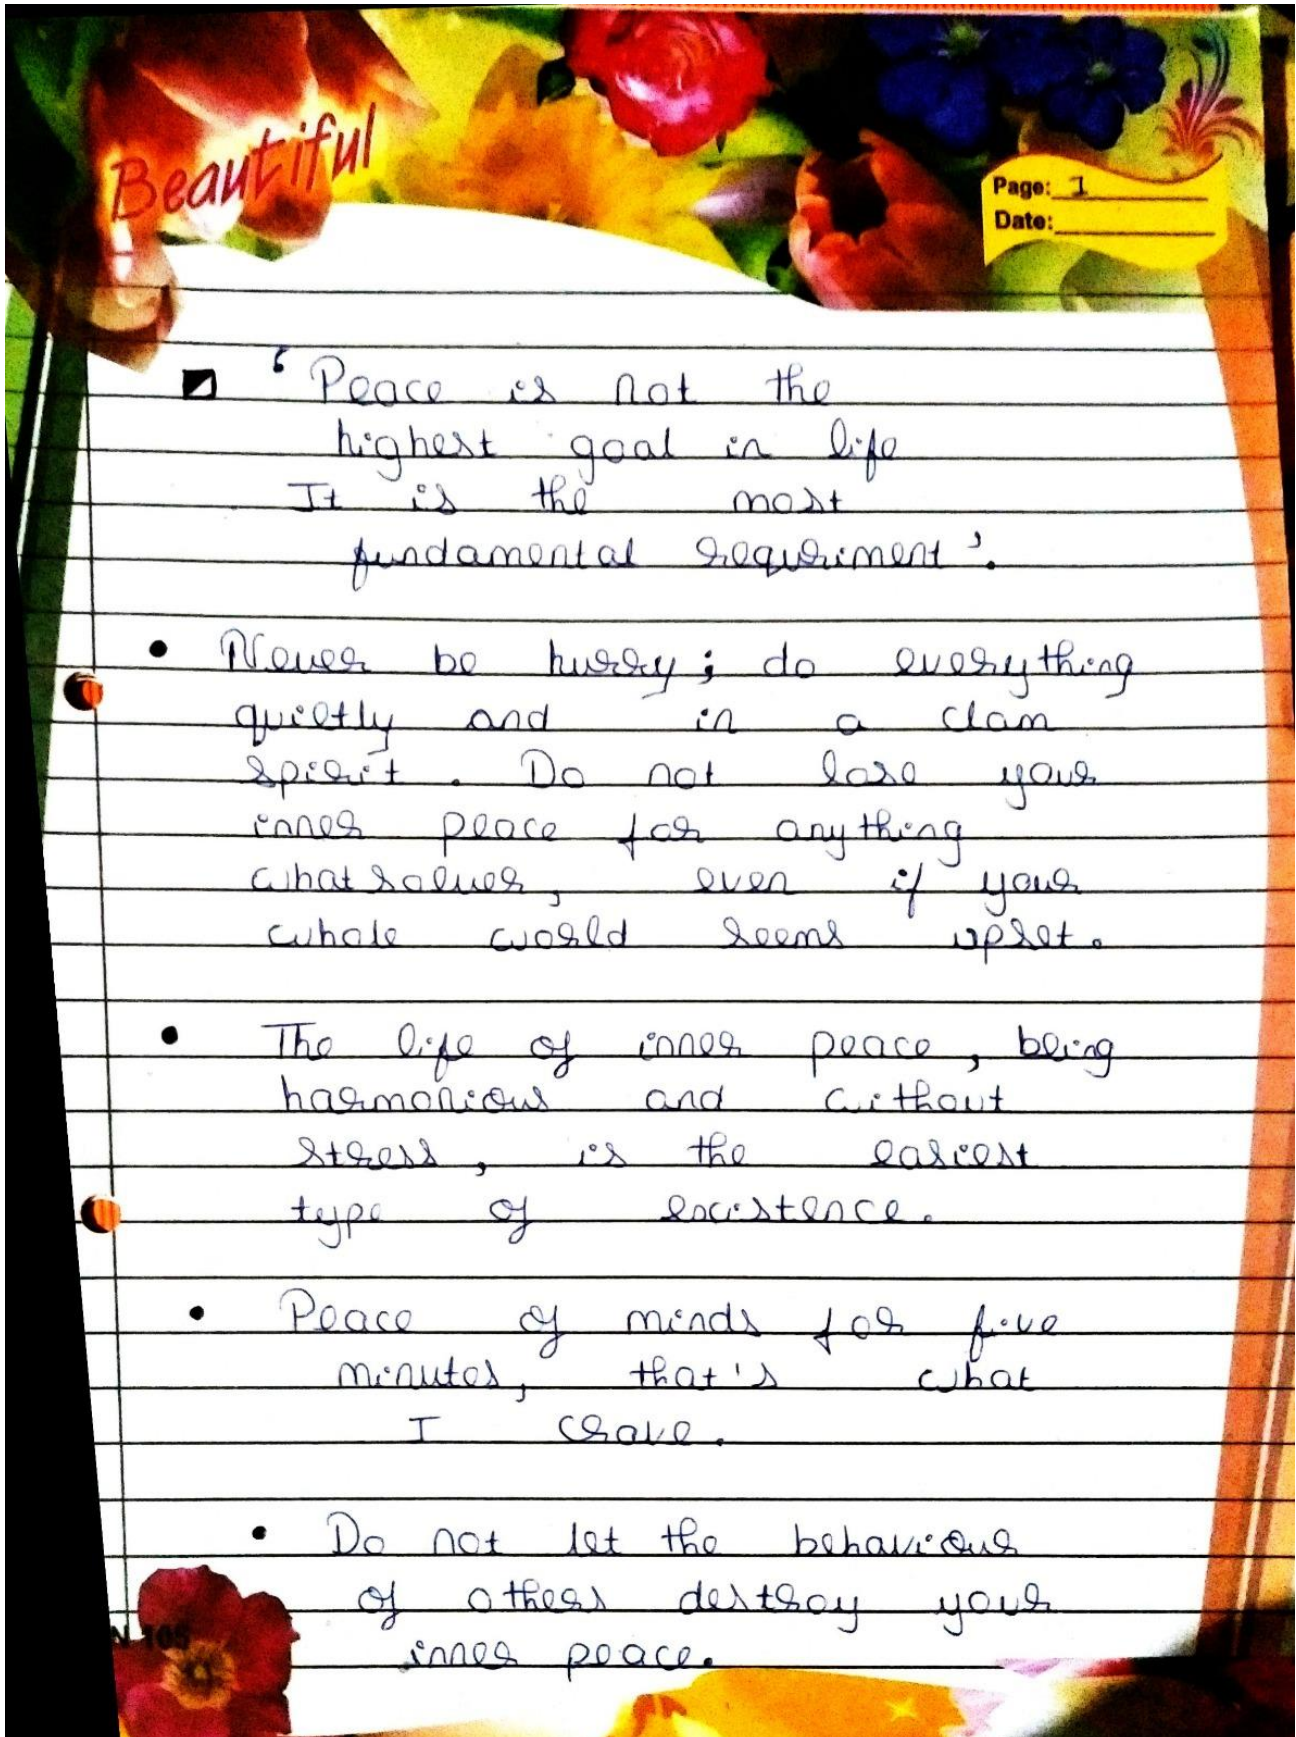 Beautiful
Page: 1
Date:
‘Peace is not the
highest goal in life
It is the most
fundamental requriment’.
• Never be hurry; do everything
quiltly and in a clam
spirit. Do not lose your
inner peace for anything
whatsoluer, even if your
whole world seems upset.
• The life of inner peace, being
harmonious and without
stress, is the easiest
type of existence.
• Peace of minds for five
minutes, that's what
I crave.
• Do not let the behaviour
of others destroy your
inner peace.
N 105